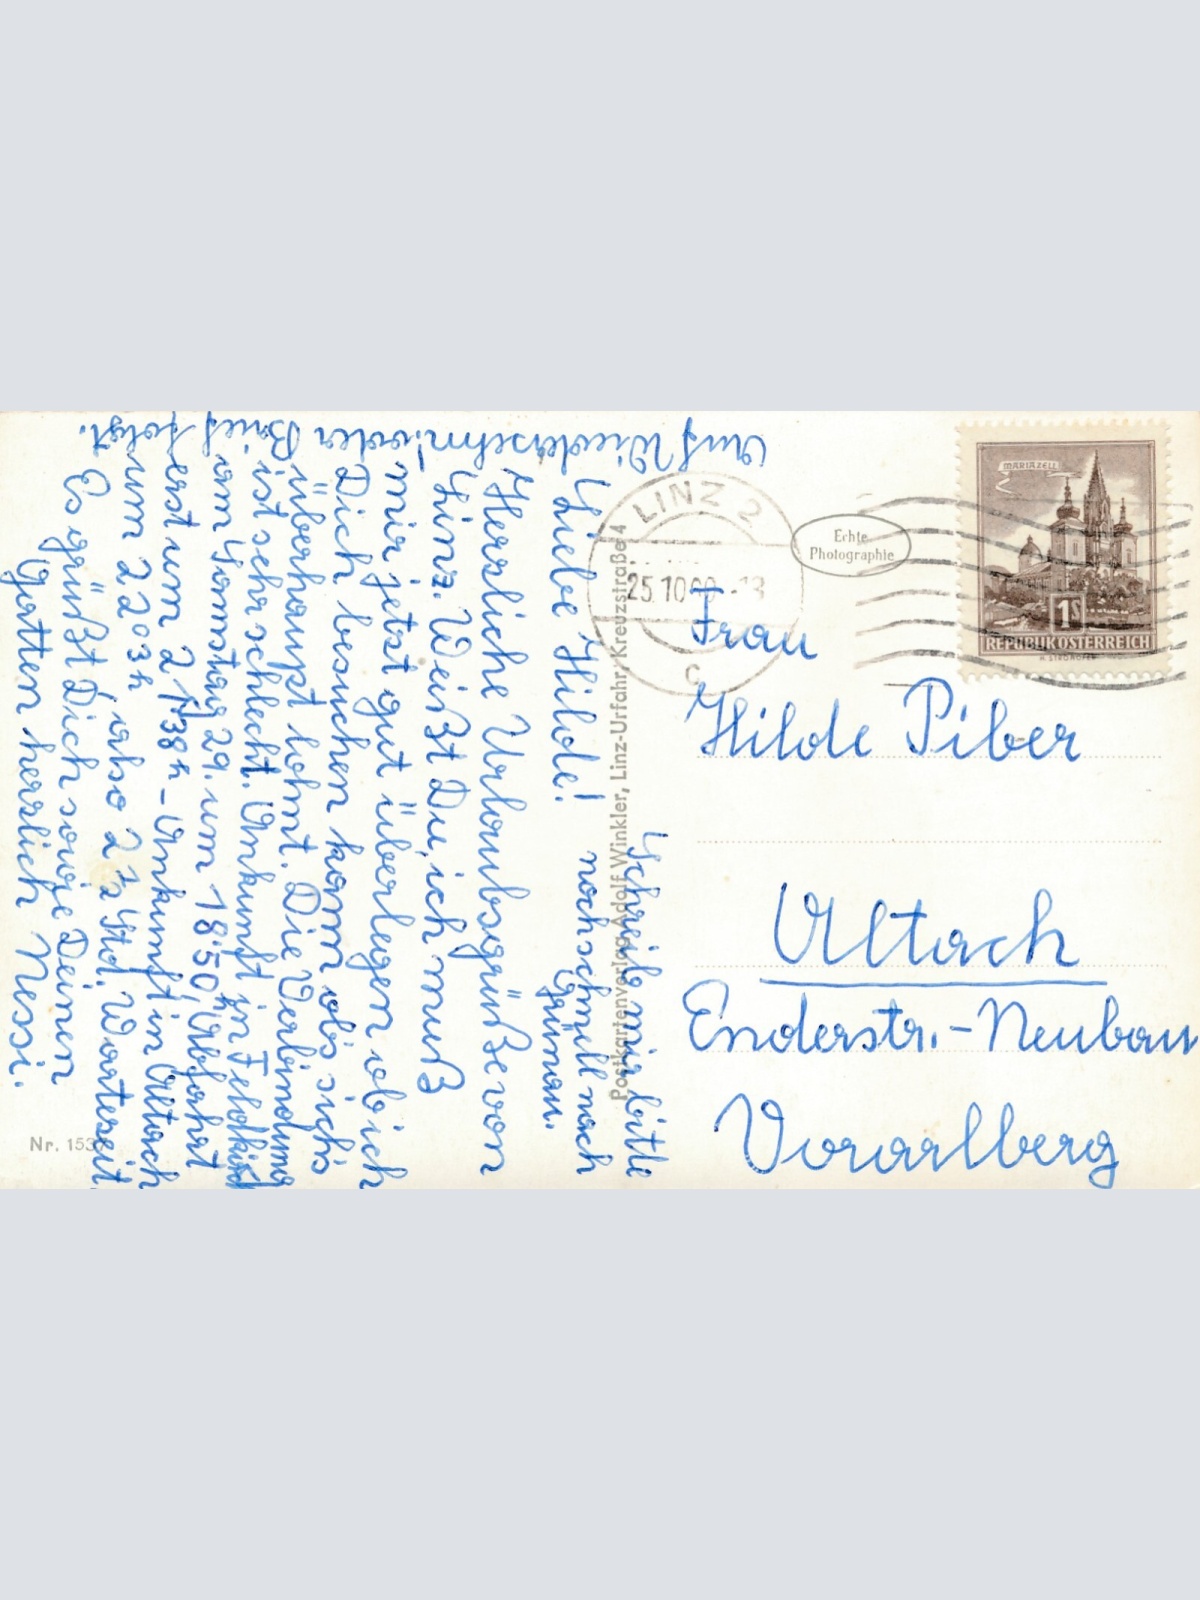 Liebe Hilde!
Herzliche Urlaubsgrüße von
Linz. Weißt Du, ich muß
mir jetzt gut überlegen ob ich
Dich besuchen kann, ob's sich's
überhaupt lohnt. Die Verbindung
ist sehr schlecht. Ankunft in Feldkirch
am Samstag 29. um 18.50h, Abfahrt
erst um 21 38h - Ankunft in Altach
um 22 03h, also 2 1/2 Std. Wartezeit.
Es grüßt Dich sowie Deinen
Gatten herzlich Nessi.
Schreib mir bitte
noch schnell nach
Grünau.
Auf Wiedersehn! oder Brief folgt.
Nr. 153
Postkartenverlag Adolf Winkler, Linz-Urfahr, Kreuzstraße 4
LINZ 2
25.10.60-13
c
Echte
Photographie
MARIAZELL
1S
REPUBLIK ÖSTERREICH
Frau
Hilde Piber
Altach
Enderstr.-Neubau
Vorarlberg